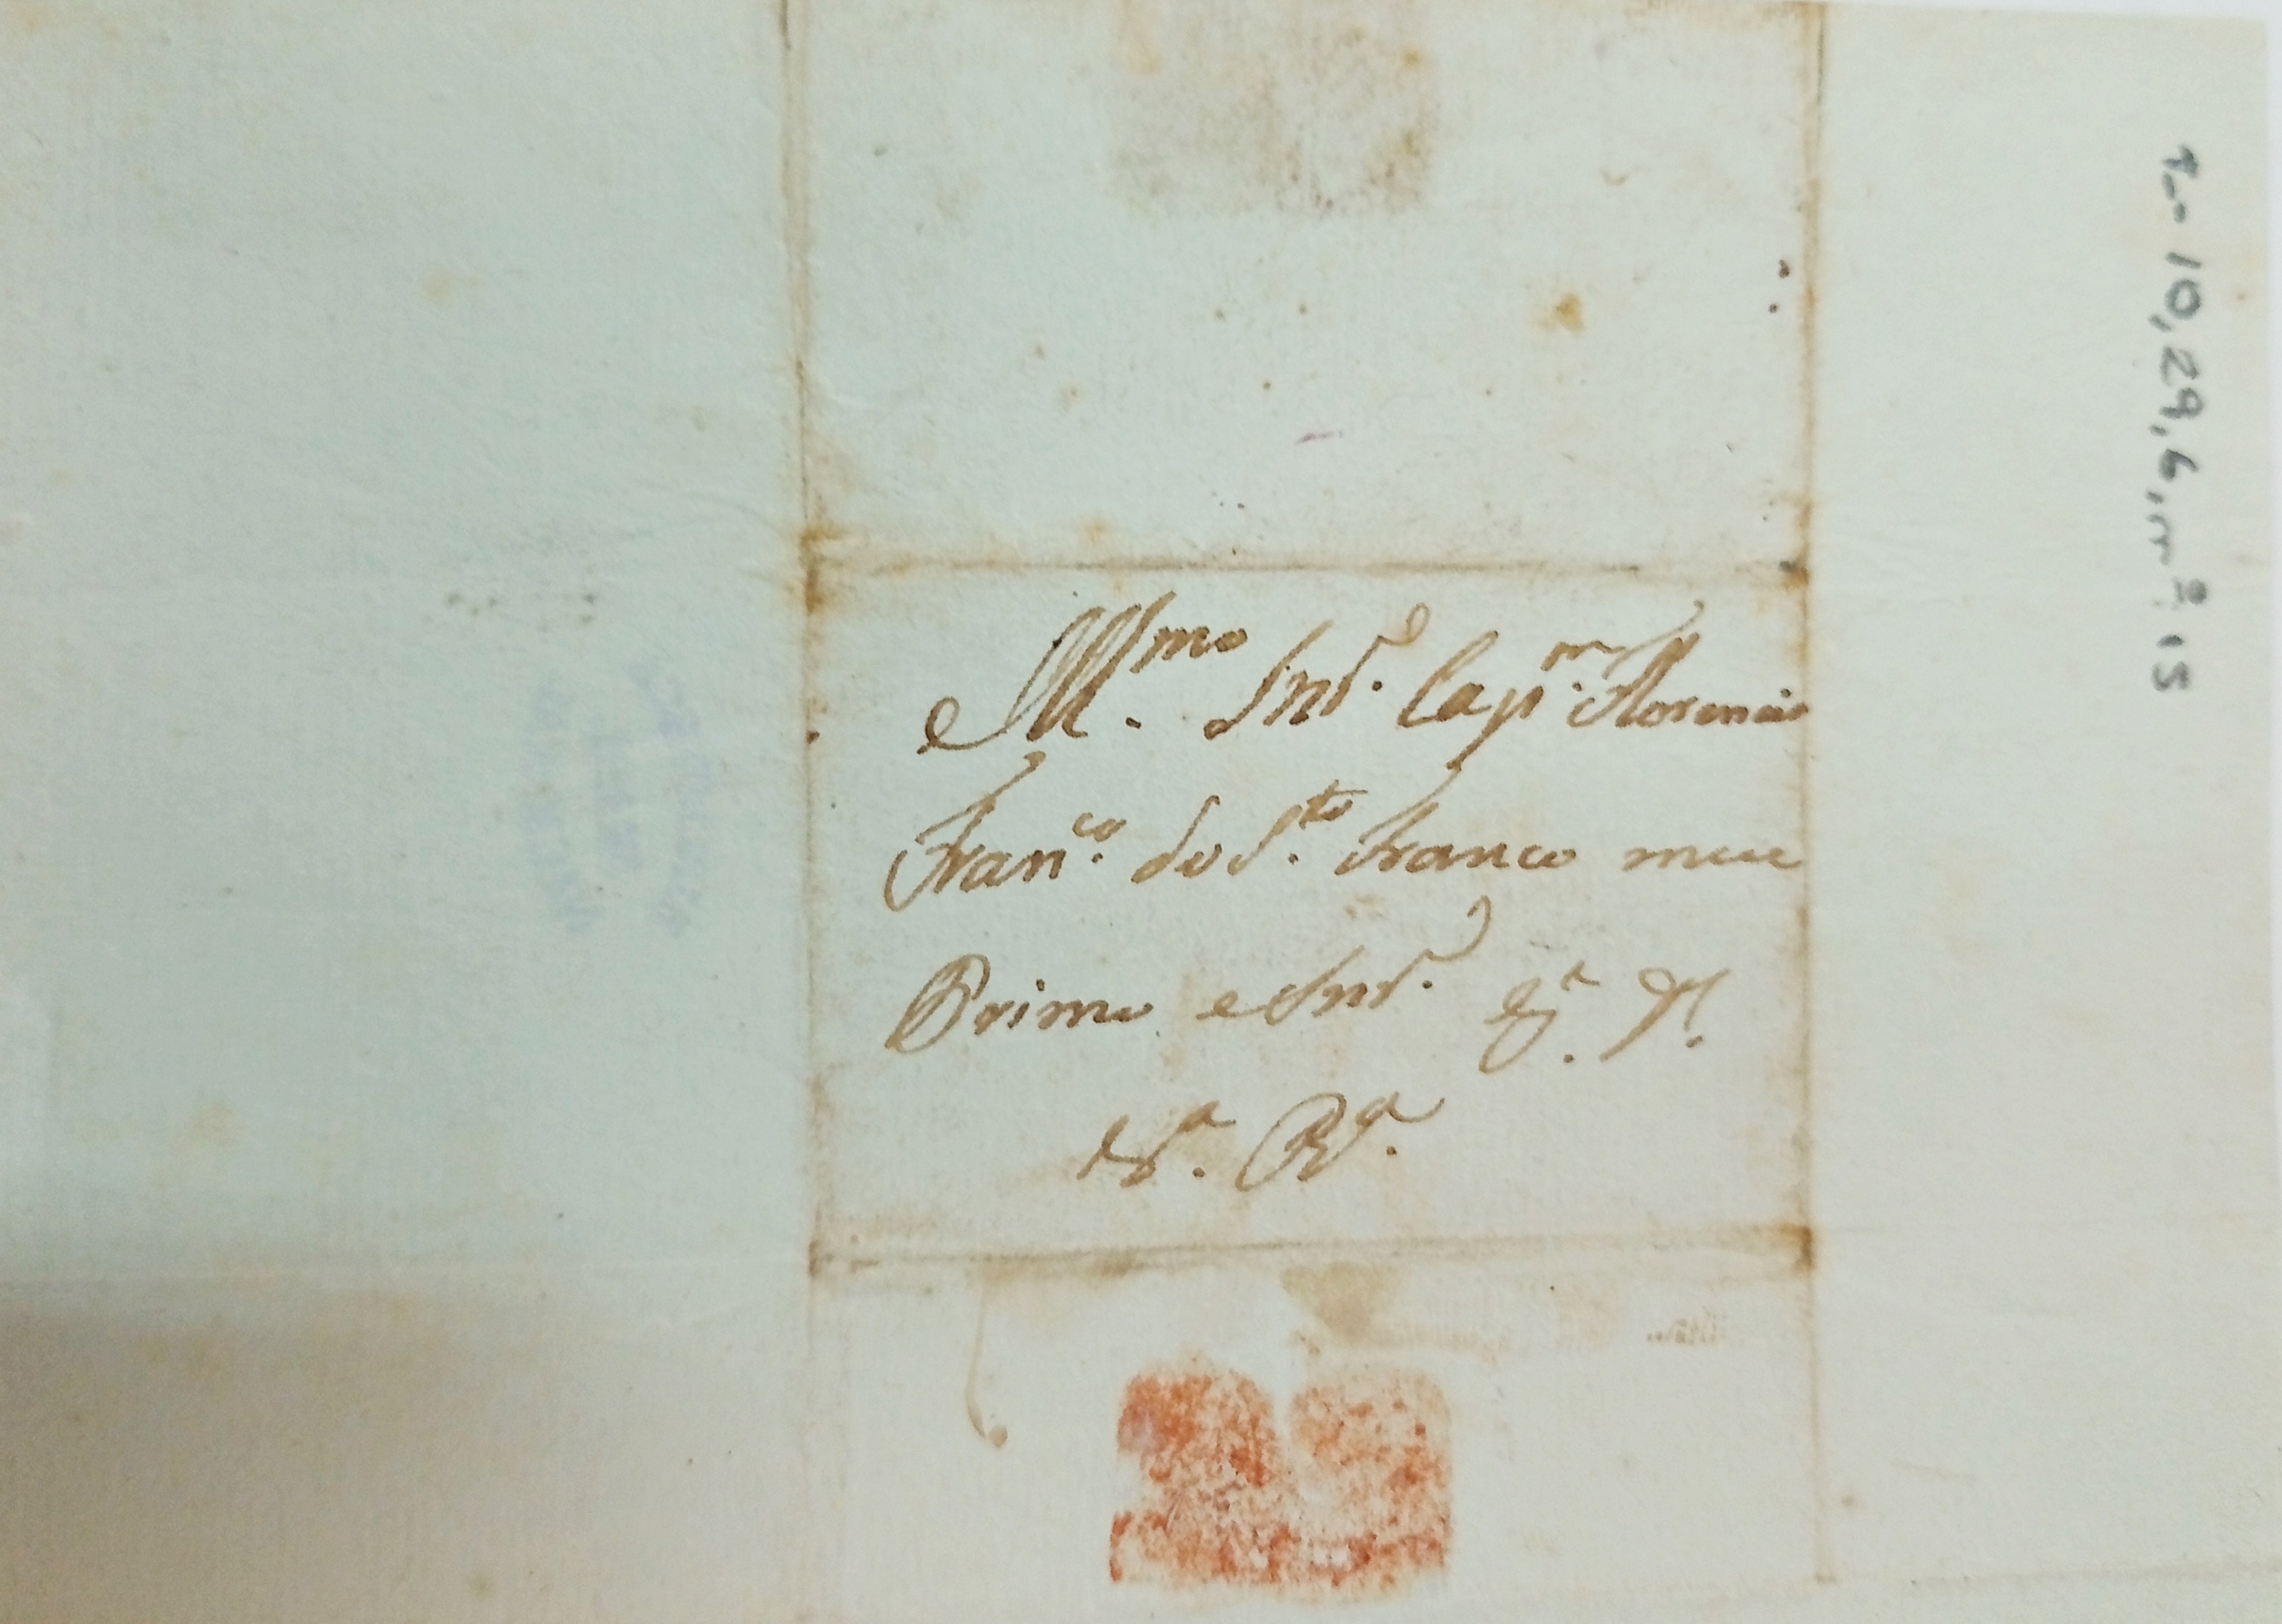 Illmo. Snr. Capm. Florencio
Franco. do Sto. Franco meu
Primo e Snr. Ga. De.
Ra.
7-- 10, 29, 6, nº 15